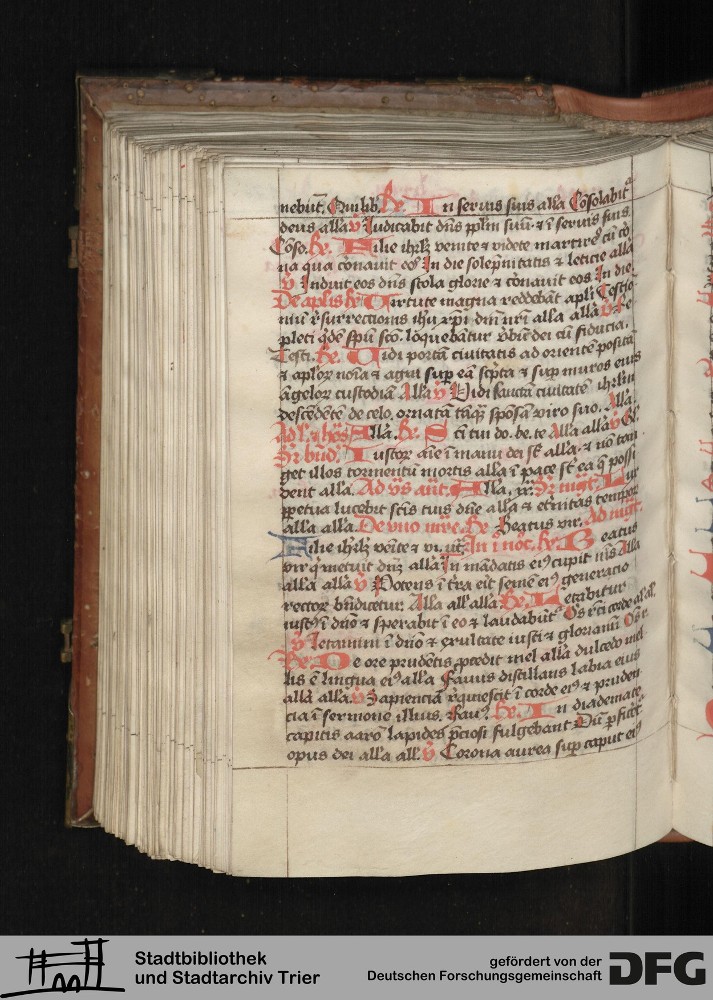 nebūt. Quilib. R̄. In seruis suis alła Cōsolabit̄
deus alła V Iudicabit dn̄s pplm̄ suū ꝛ ī seruis suis
Cōso. R̄. Filie ihrłz venite ꝛ videte martires cū co
na qua coronauit eos In die solepnitatis ꝛ leticie alła
V Induit eos dn̄s stola glorie ꝛ coronauit eos In die
De apl̄is R̄ Uirtute magna reddebāt apl̄i Testīo
niū r̄surrectionis ihū xp̄i dn̄i nr̄i alła alła V Re
pleti q̇dē spū sc̄o. loquebātur v̄bū dei cū fiducia.
Testi. R̄. Uidi portā ciuitatis ad orientē positā
ꝛ aplor̄ noīa ꝛ agni sup eā sc̄pta ꝛ sup muros eius
āgelor̄ custodiā Alła V Vidi sanctā ciuitatē ihrłm
descēdētē de celo. ornatā tāq̄ spōsā viro suo. Alła
Alła. R̄. S cī tui do. be. te Alła alła V Gł.
Iustor̄ aīe ī manu dei st̄ alła. ꝛ nō tan
get illos tormentū mortis alła ī pace st̄ ea q̄ possi
dent alła. Ad v̄s an̄t. Alła, Lux
ppetua lucebit sc̄is tuis dn̄e alła ꝛ et̄nitas tempor̄
alła alła. De vno mr̄e. R̄ Beatus vir. Ad
Filie ihrłz venīte ꝛ vi. ut. In i noc̄. R̄. Beatus
vir q̇ metuit dn̄z alła In mādatis ei⁹ cupit nīs Alła
alła alła V Potens ī t̄ra erit semē ei⁹ generacio
rector̄ bn̄dicetur. Alła alła alła R̄. Letabitur
iust⁹ ī dn̄o ꝛ sperabit ī eo ꝛ laudabūt̄ Oēs rc̄i corde ał ał.
V Letamini ī dn̄o ꝛ exultate iusti ꝛ gloriamī Oēs r̄.
R̄. De ore prudētis p̄cedit mel alła dulcedo mel
lis ē lingua ei⁹ alła Fauus distillans labia eius
alła alła. V Sapiencia r̄quiescit ī corde ei⁹ ꝛ pruden
cia ī sermone illius. Fau⁹. R̄. In diademate
capitis aaron lapides p̄ciosi fulgebant Dū p̄ficer̄t̄
opus dei alła ałł. V Corona aurea sup caput ei⁹
Stadtbibliothek
und Stadtarchiv Trier
gefördert von der
Deutschen Forschungsgemeinschaft
DFG